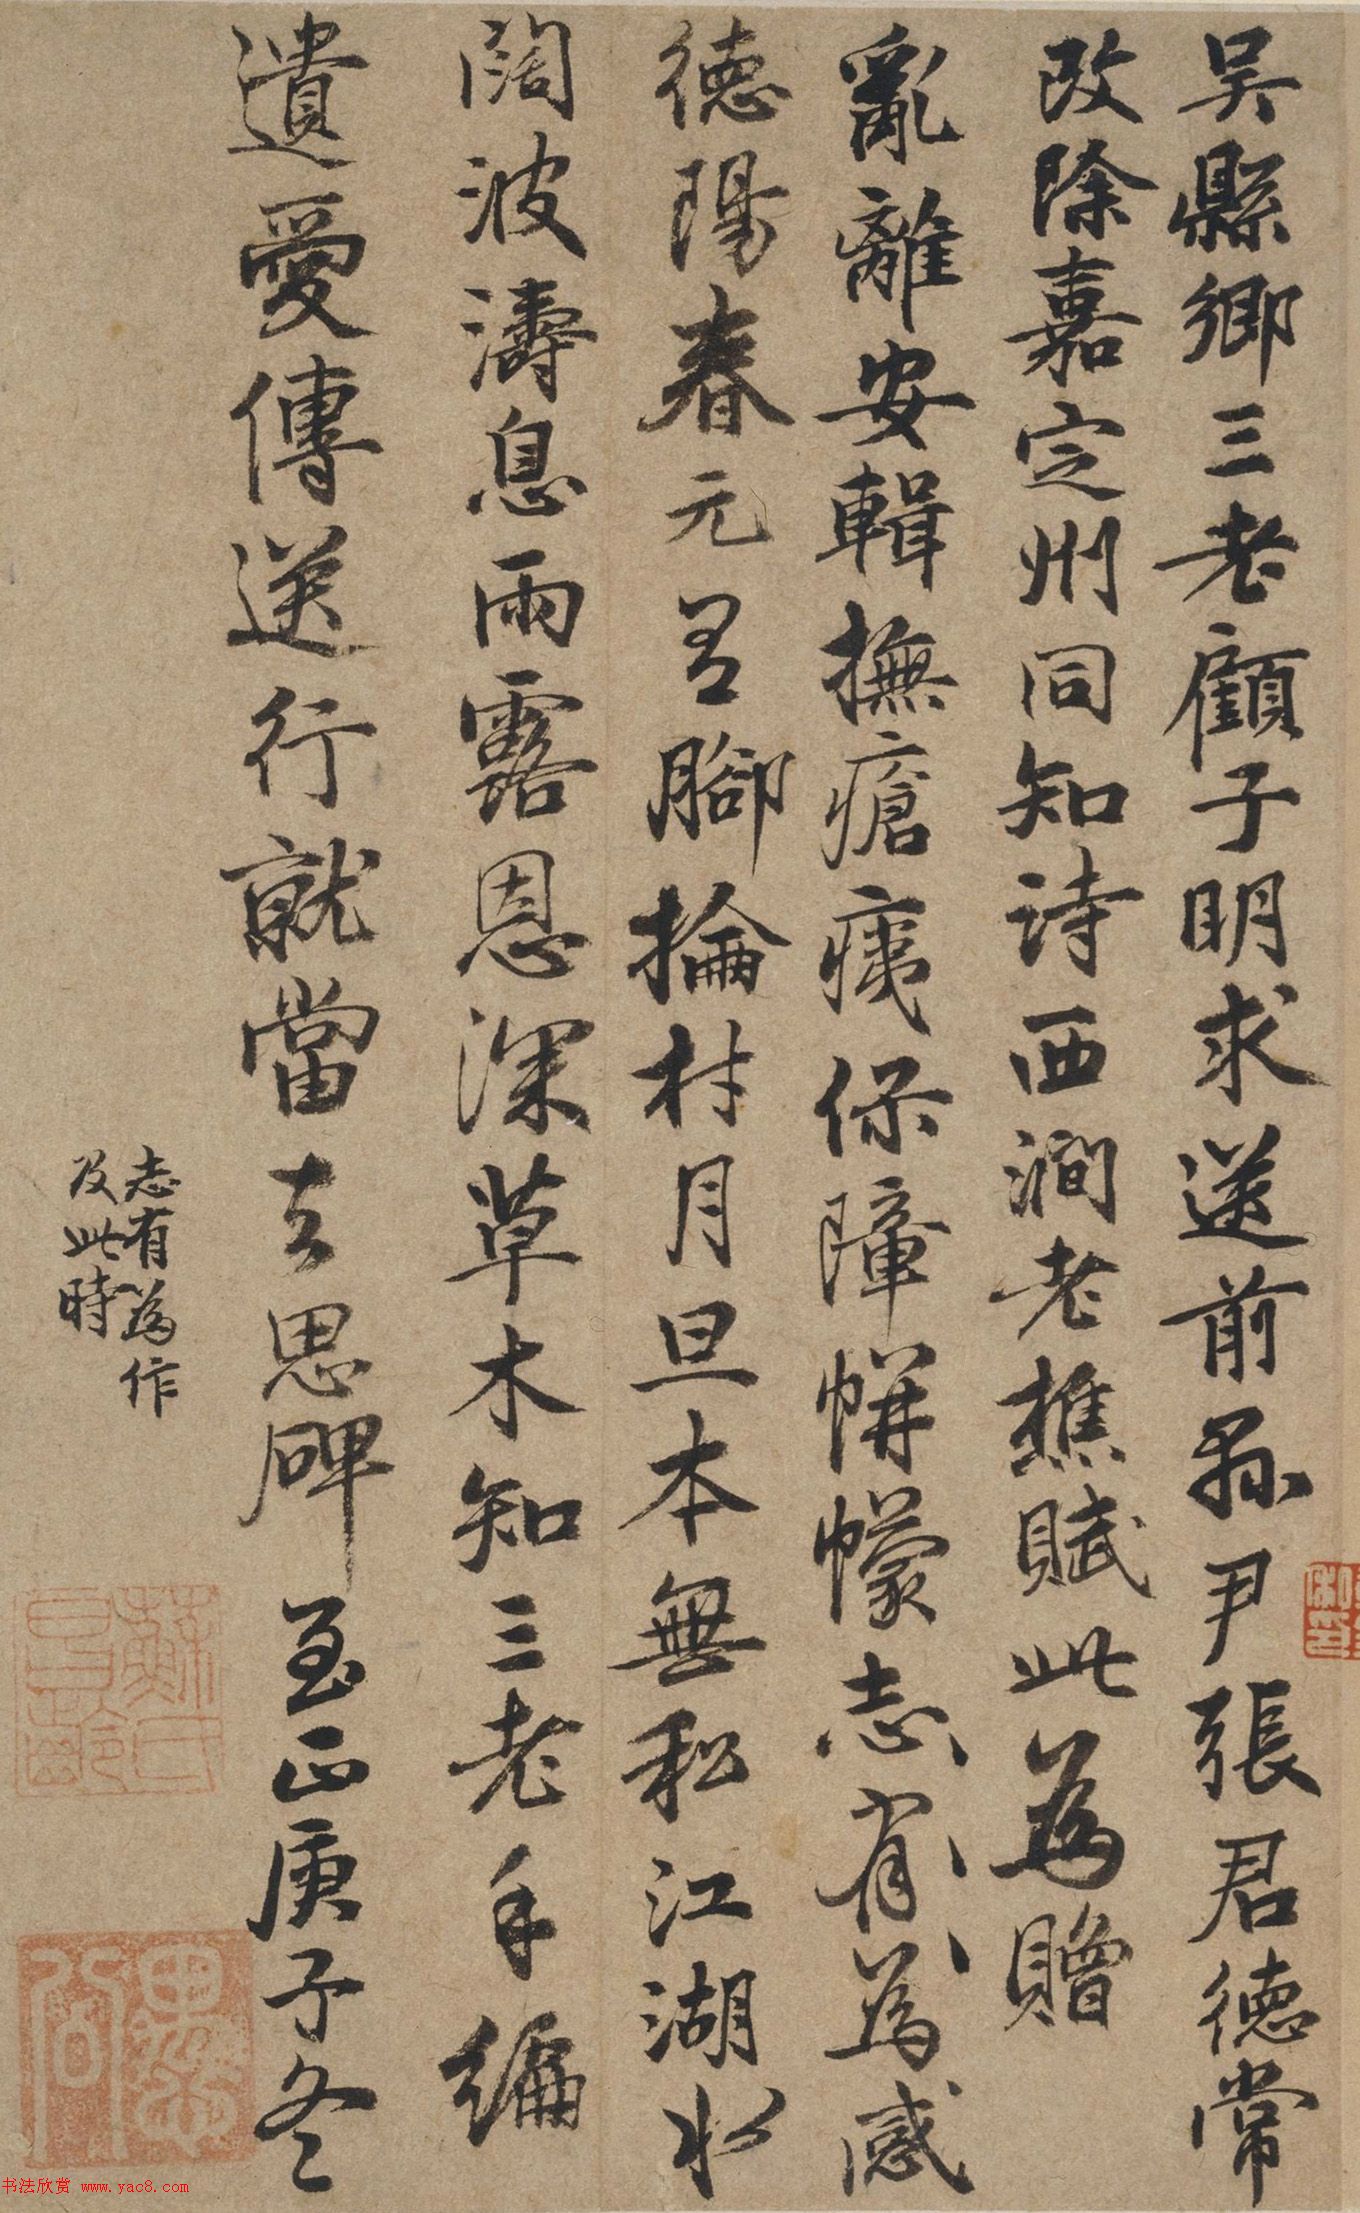 吴縣鄉三老顧子明求送前縣尹張君德常
改除嘉定州同知诗西澗老樵賦此為贈
亂離安輯撫瘡痍保障帡幪志有為感
德陽春元有腳掄材月旦本無私江湖水
闊波濤息雨露恩深草木知三老手編
遺愛傳送行就當去思碑至正庚子冬
志有為作
及此時
书法欣赏 www.yac8.com